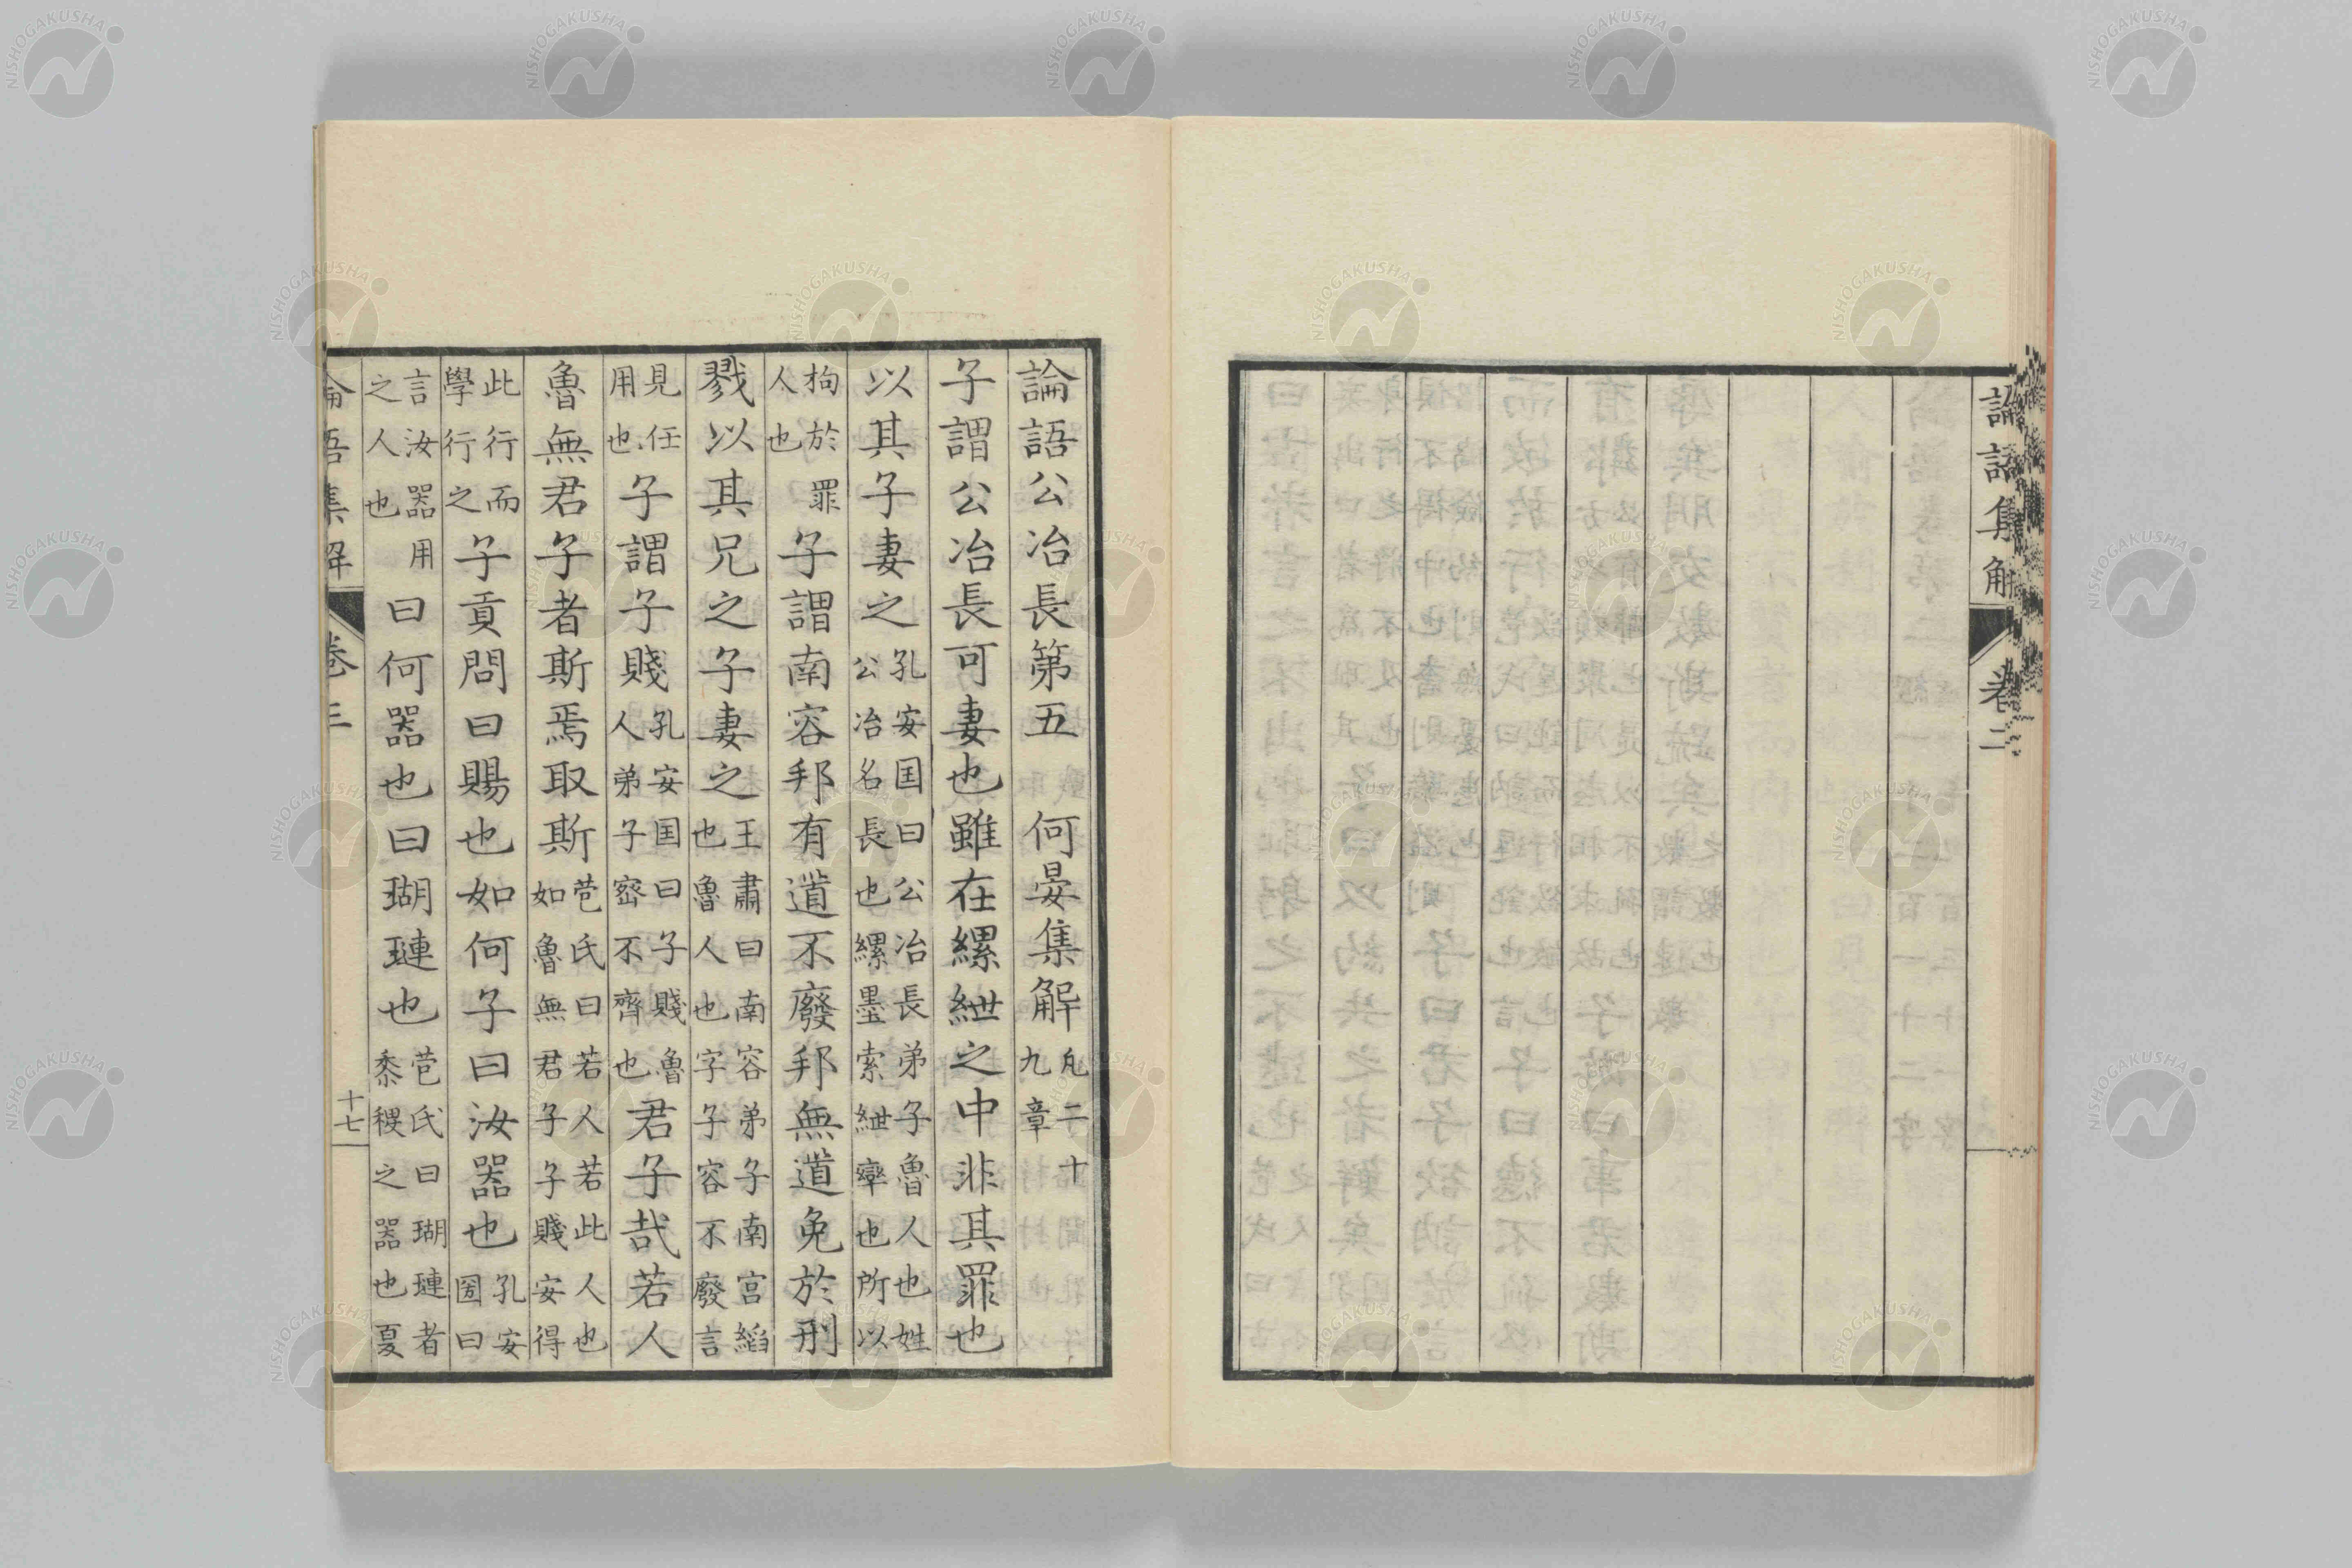 論語集解 卷二
論語公冶長第五 何晏集解 凡二十九章
子謂公冶長可妻也雖在縲紲之中非其罪也
以其子妻之 孔安囯曰公冶長弟子魯人也姓公冶名長也縲墨索紲攣也所以
拘於罪人也 子謂南容邦有道不廢邦無道免於刑
戮以其兄之子妻之 王肅曰南容弟子南宮縚也魯人也字子容不廢言
見任用也 子謂子賤 孔安囯曰子賤魯人弟子宓不齊也 君子哉若人
魯無君子者斯焉取斯 苞氏曰若人若此人也如魯無君子子賤安得
此行而學行之 子貢問曰賜也如何子曰汝噐也 孔安囯曰
言汝噐用之人也 曰何噐也曰瑚璉也 苞氏曰瑚璉者黍稷之噐也夏
論語集解 卷三 十七
NISHOGAKUSHA